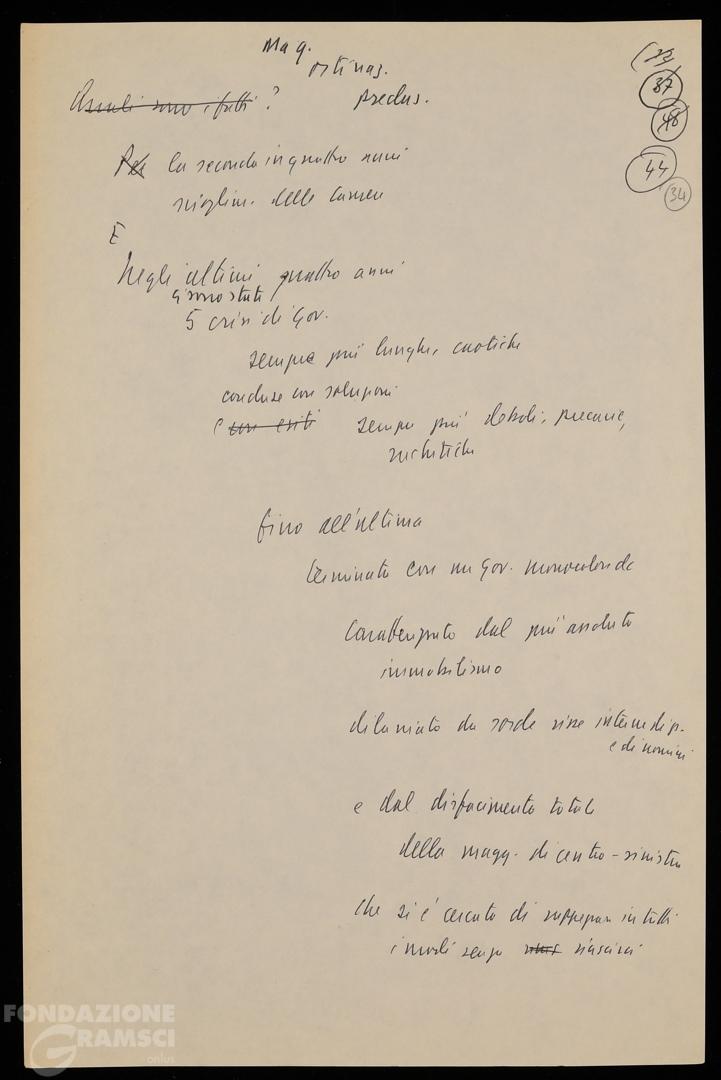 Mag.
ostinaz.
Quali sono i fatti ?
preclus.
23
37
48
44
34
Per la seconda in quattro anni
scioglim. delle Camere
E
Negli ultimi quattro anni
ci sono stati
5 crisi di Gov.
sempre più lunghe, caotiche
concluse con soluzioni
e con esiti sempre più deboli, precarie,
rachitiche
fino all'ultima
terminata con un Gov. monocolore dc
Caratterizzato dal più assoluto
immobilismo
dilaniato da sorde risse interne di p.
e di uomini
e dal disfacimento totale
della magg. di centro-sinistra
che si è cercato di rappezzare in tutti
i modi senza riuscirci
FONDAZIONE
GRAMSCI
onlus